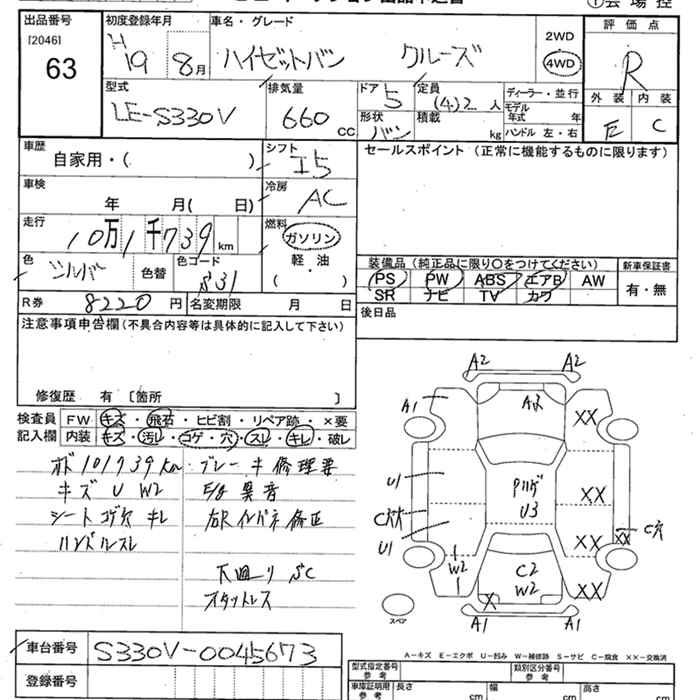 出品番号 初度登録年月 車名・グレード 評価点
[2046]
63
H19 8月 ハイゼットバン クルーズ 2WD 4WD R
型式 排気量 ドア 定員 ディーラー・並行 外装 内装
LE-S330V 660 cc 5 (4)2人 モデル年式 年 E C
形状 バン 積載 kg ハンドル 左・右
車歴 自家用・( ) シフト I5 セールスポイント (正常に機能するものに限ります)
車検 年 月( 日) 冷房 AC
走行 10万1千739km 燃料 ガソリン
軽・油
( )
色 シルバー 色替 色コード S31
装備品 (純正品に限り〇をつけてください) 新車保証書
PS PW ABS エアB AW 有・無
SR ナビ TV カワ
R券 8220円 名変期限 月 日 後日品
注意事項申告欄(不具合内容等は具体的に記入して下さい)
修復歴 有 [箇所 ]
検査員 FW キズ・飛石・ヒビ割・リペア跡・×要
記入欄 内装 キズ・汚レ・コゲ・穴・スレ・キレ・破レ
101739km ブレーキ修理要
キズ U W2 E/g 異音
シートコゲ穴 キレ 右Rインパネ修正
ハンドルスレ
下廻り SC
スタットレス
A2 A2
A1 A2 XX
U1 U3 XX
U1 XX C穴
W2 C2 W2 XX
X
A1 A1
スペア
A-キズ E-エクボ U-凹み W-補修跡 S-サビ C-腐食 XX-交換済
車台番号 S330V-0045673
登録番号
型式指定番号 参考 類別区分番号 参考
車庫証明用 参考 長さ cm 幅 cm 高さ cm